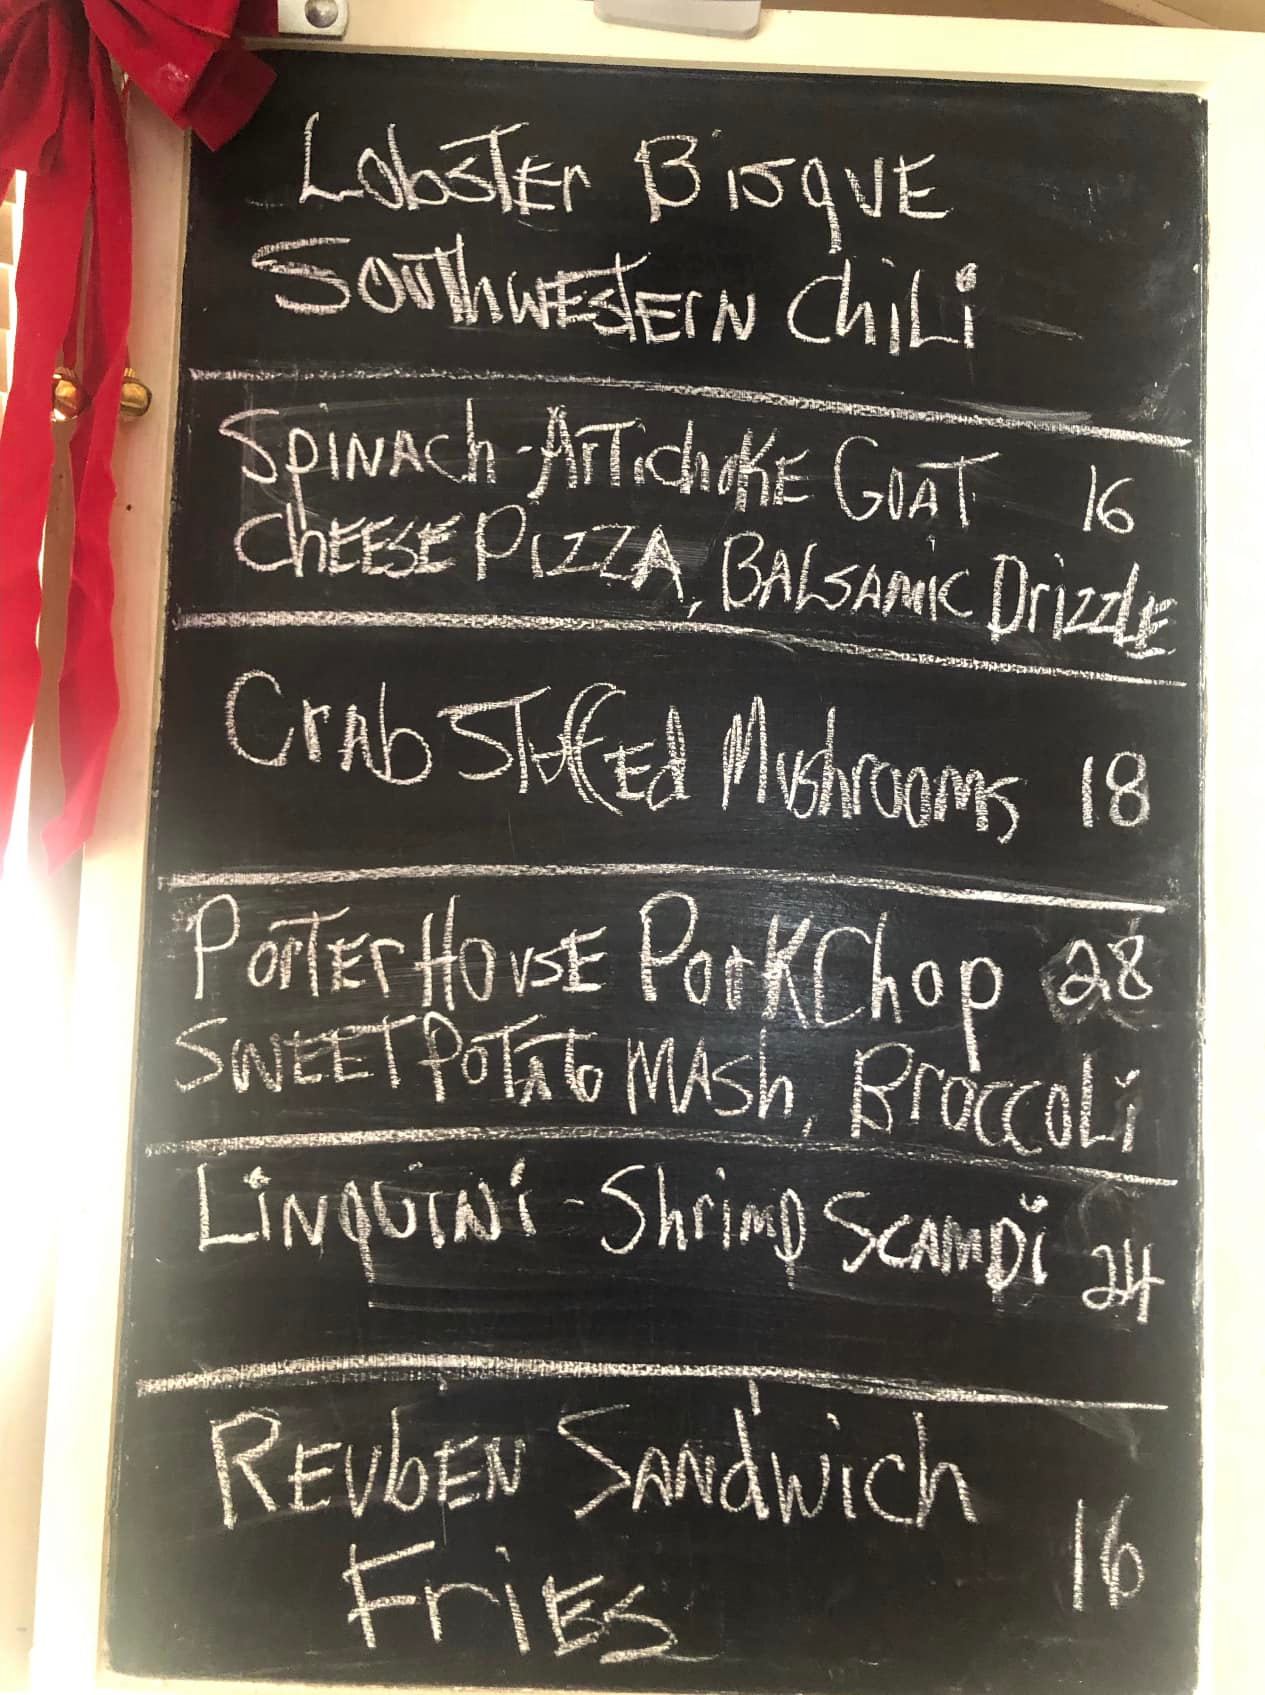 Lobster Bisque
Southwestern Chili
Spinach-Artichoke Goat 16
Cheese Pizza, Balsamic Drizzle
Crab Stuffed Mushrooms 18
Porterhouse Pork Chop 28
Sweet Potato Mash, Broccoli
Linquini - Shrimp Scampi 24
Reuben Sandwich
Fries 16